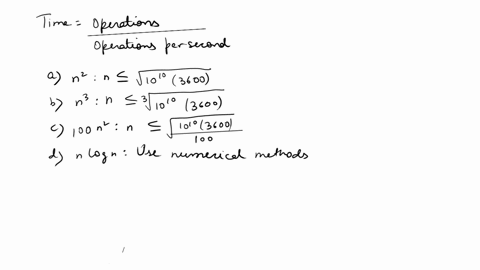 Time = Operations / Operations per second
a) n² : n ≤ √10¹⁰ (3600)
b) n³ : n ≤ ³√10¹⁰ (3600)
c) 100 n² : n ≤ √10¹⁰ (3600) / 100
d) n log n : Use numerical methods